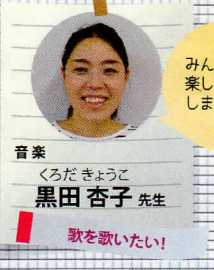 みん
楽し
しま
音楽
くろだ きょうこ
黒田 杏子 先生
歌を歌いたい!